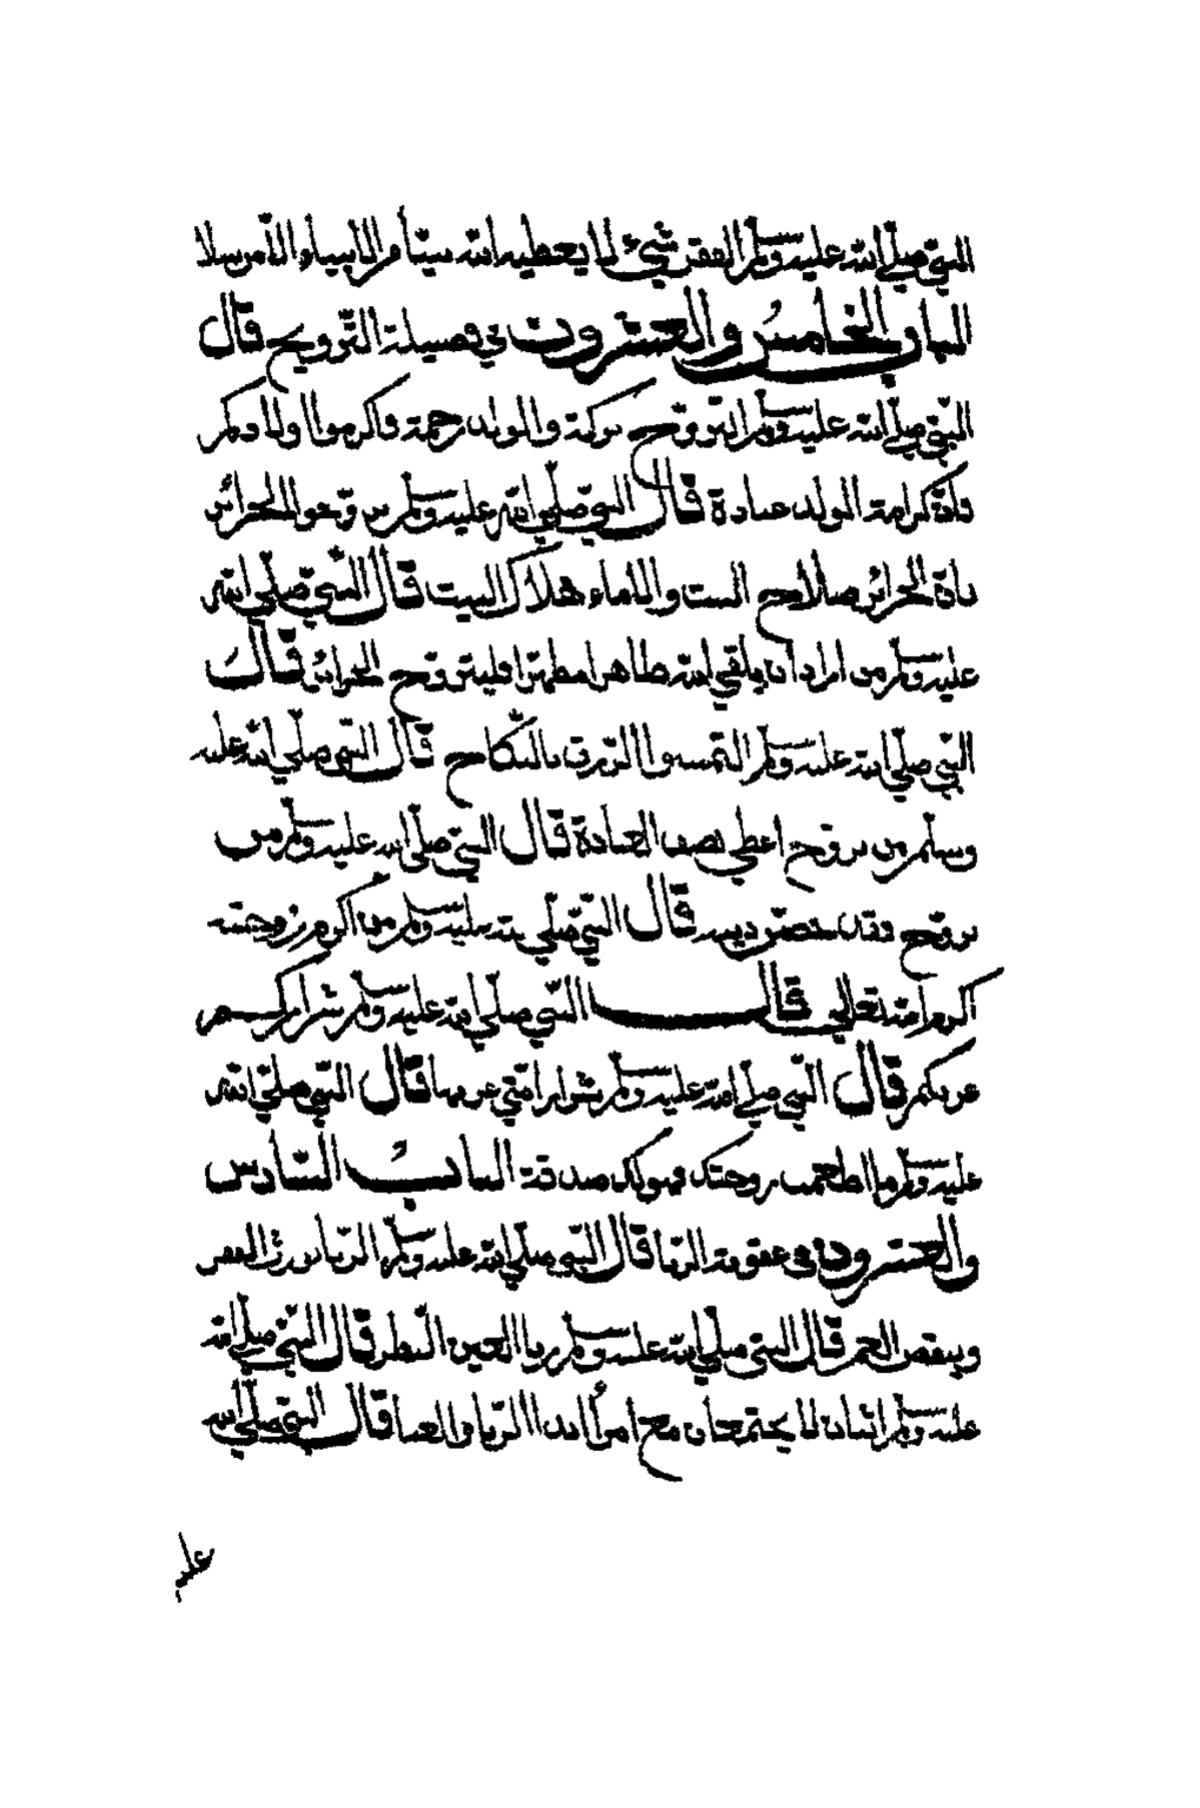 النبي صلي الله عليه وسلم الفقر شيئ لا يعطيه الله شيئا من الأنبياء والأمرسلا
الباب الخامس والعشرون في فضيلة التزويج قال
النبي صلي الله عليه وسلم التزوج بركة والولد رحمة فاكرموا اولادكم
فان كرامة الولد عبادة قال النبي صلي الله عليه وسلم تزوجوا الحرائر
فان الحرائر صلاح البيت والاماء هلاك البيت قال النبي صلي الله
عليه وسلم من اراد ان يلقي الله طاهرا مطهرا فليتزوج الحرائر قال
النبي صلي الله عليه وسلم التمسوا الرزق بالنكاح قال النبي صلي الله عليه
وسلم من تزوج اعطي نصف العبادة قال النبي صلي الله عليه وسلم من
تزوج فقد دينه قال النبي صلي الله عليه وسلم من اكرم زوجته
اكرم الله تعالي قال النبي صلي الله عليه وسلم شراركم
عزبكم قال النبي صلي الله عليه وسلم شرار امتي عزبها قال النبي صلي الله
عليه وسلم ما اطعمت زوجتك فهو لك صدقة الباب السادس
والعشرون في عقوبة الزنا قال النبي صلي الله عليه وسلم الزنا يورث الفقر
وينقص العمر قال النبي صلي الله عليه وسلم زنا العين النظر قال النبي صلي الله
عليه وسلم اثنان لا يجتمعان مع امرأ ابدا الزنا والغنا قال النبي صلي الله
عليه